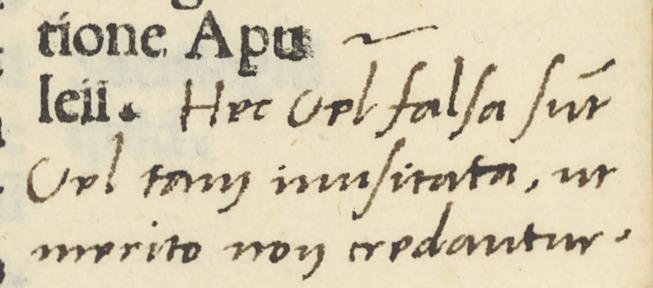 tione Apu
leii. Hec Vel falsa sūt
Vel tam inusitata, ut
merito non credantur.